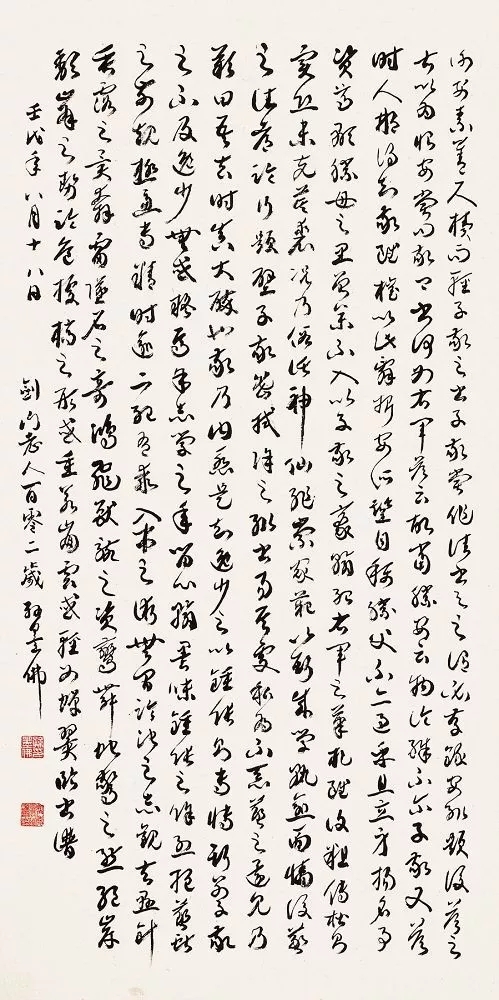 謝安素善尺牘而輕子敬之書子敬嘗作佳書與之謂必存錄安輒題後答之
甚以為恨安嘗問敬卿書何如右軍答云故當勝安云物論殊不爾子敬又答
時人那得知敬雖權以此辭折安所鑒自稱勝父不亦過乎且立身揚名事
資尊顯勝母之里曾參不入以子敬之豪翰紹右軍之筆札雖復粗傳楷則
實恐未克箕裘況乃假託神仙恥崇家範以斯成學孰愈面牆後羲
之往都臨行題壁子敬密拭除之輒書易其處私為不惡羲之還見乃
歎曰吾去時真大醉也敬乃內慚是知逸少之比鍾張則專博斯別子敬
之不及逸少無或疑焉余志學之年留心翰墨味鍾張之餘烈挹羲獻
之前規極慮專精時逾二紀有乖入木之術無間臨池之志觀夫懸針
垂露之異奔雷墜石之奇鴻飛獸駭之資鸞舞蛇驚之態絕岸
頹峰之勢臨危據槁之形或重若崩雲或輕如蟬翼節書譜
壬戌年八月十八日 劍門老人百零二歲孫墨佛